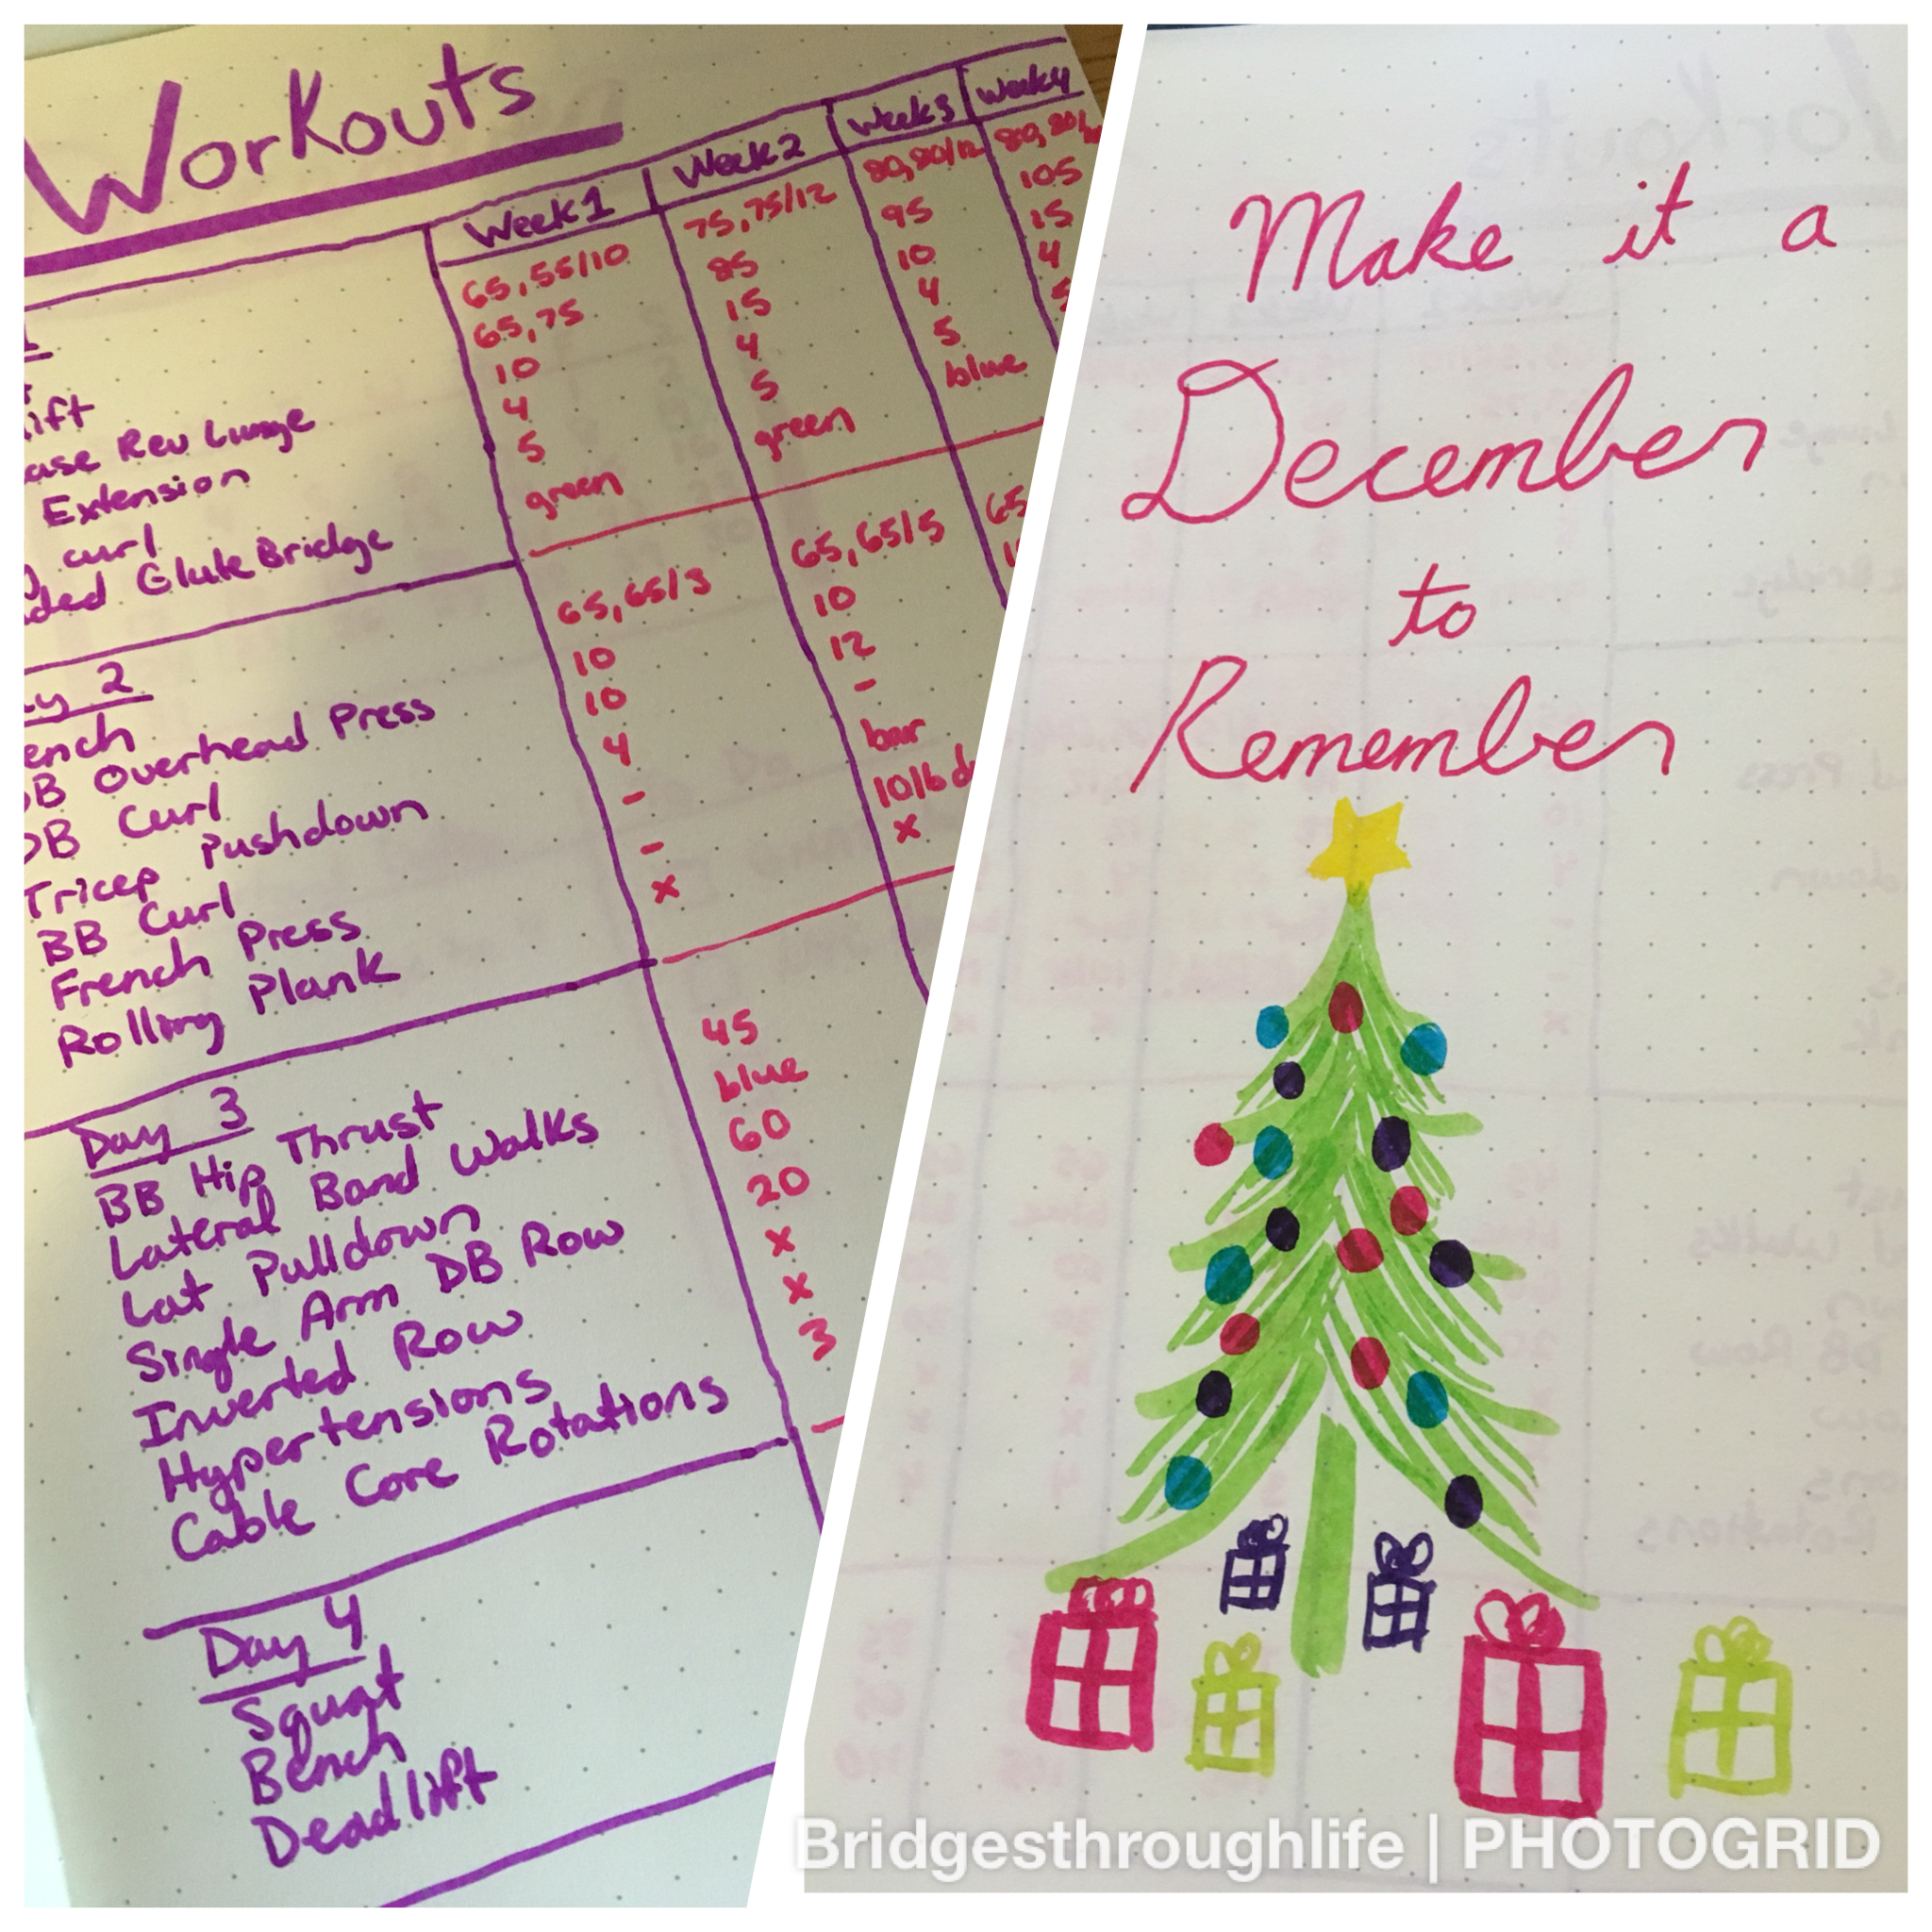 Workouts
Week 1 Week 2 Week 3 Week 4
65,55/10 75,75/12 80,80/12 80,80/
65,75 85 95 105
lift 10 15 10 15
Rev Lunge 4 4 4 4
Extension 5 5 5
curl green green blue
Glute Bridge
Day 2
Bench 65,65/3 65,65/5 65
DB Overhead Press 10 10
DB Curl 10 12
Tricep Pushdown 4 -
BB Curl - bar
French Press - 10lb
Rolling Plank x x
Day 3
BB Hip Thrust 45
Lateral Band Walks blue
Lat Pulldown 60
Single Arm DB Row 20
Inverted Row x
Hypertensions x
Cable Core Rotations 3
Day 4
Squat
Bench
Deadlift
Make it a
December
to
Remember
Bridgesthroughlife | PHOTOGRID